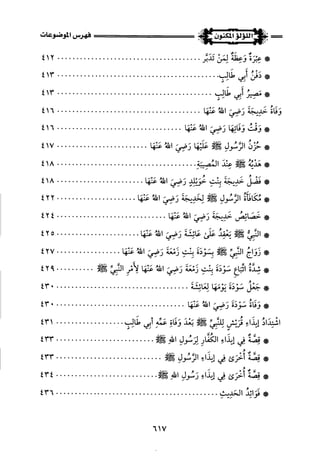 اللؤلؤ المكنون
فهرس الموضوعات
* عِبْرَةٌ وَعِظَةٌ لِمَنْ تَدَبَّرَ ..... ٤١٢
* دَفْنُ أَبِي طَالِبٍ ..... ٤١٣
* مَصِيرُ أَبِي طَالِبٍ ..... ٤١٣
وَفَاةُ خَدِيجَةَ رَضِيَ اللهُ عَنْهَا ..... ٤١٦
* وَقْتُ وَفَاتِهَا رَضِيَ اللهُ عَنْهَا ..... ٤١٦
* حُزْنُ الرَّسُولِ ﷺ عَلَيْهَا رَضِيَ اللهُ عَنْهَا ..... ٤١٧
* هَدْيُهُ ﷺ عِنْدَ الْمُصِيبَةِ ..... ٤١٨
* فَضْلُ خَدِيجَةَ بِنْتِ خُوَيْلِدٍ رَضِيَ اللهُ عَنْهَا ..... ٤١٨
* مُكَافَأَةُ الرَّسُولِ ﷺ لِخَدِيجَةَ رَضِيَ اللهُ عَنْهَا ..... ٤٢٢
* خَصَائِصُ خَدِيجَةَ رَضِيَ اللهُ عَنْهَا ..... ٤٢٤
* النَّبِيُّ ﷺ يَعْقِدُ عَلَى عَائِشَةَ رَضِيَ اللهُ عَنْهَا ..... ٤٢٥
* زَوَاجُ النَّبِيِّ ﷺ بِسَوْدَةَ بِنْتِ زَمْعَةَ رَضِيَ اللهُ عَنْهَا ..... ٤٢٧
* شِدَّةُ اتِّبَاعِ سَوْدَةَ بِنْتِ زَمْعَةَ رَضِيَ اللهُ عَنْهَا لِأَمْرِ النَّبِيِّ ﷺ ..... ٤٢٩
* جَعْلُ سَوْدَةَ يَوْمَهَا لِعَائِشَةَ ..... ٤٣٠
* وَفَاةُ سَوْدَةَ رَضِيَ اللهُ عَنْهَا ..... ٤٣٠
اشْتِدَادُ إِيذَاءِ قُرَيْشٍ لِلنَّبِيِّ ﷺ بَعْدَ وَفَاةِ عَمِّهِ أَبِي طَالِبٍ ..... ٤٣١
* قِصَّةٌ فِي إِيذَاءِ الْكُفَّارِ لِرَسُولِ اللهِ ﷺ ..... ٤٣٣
* قِصَّةٌ أُخْرَى فِي إِيذَاءِ الرَّسُولِ ﷺ ..... ٤٣٣
* قِصَّةٌ أُخْرَى فِي إِيذَاءِ رَسُولِ اللهِ ﷺ ..... ٤٣٤
* فَوَائِدُ الْحَدِيثِ ..... ٤٣٦
٦١٧